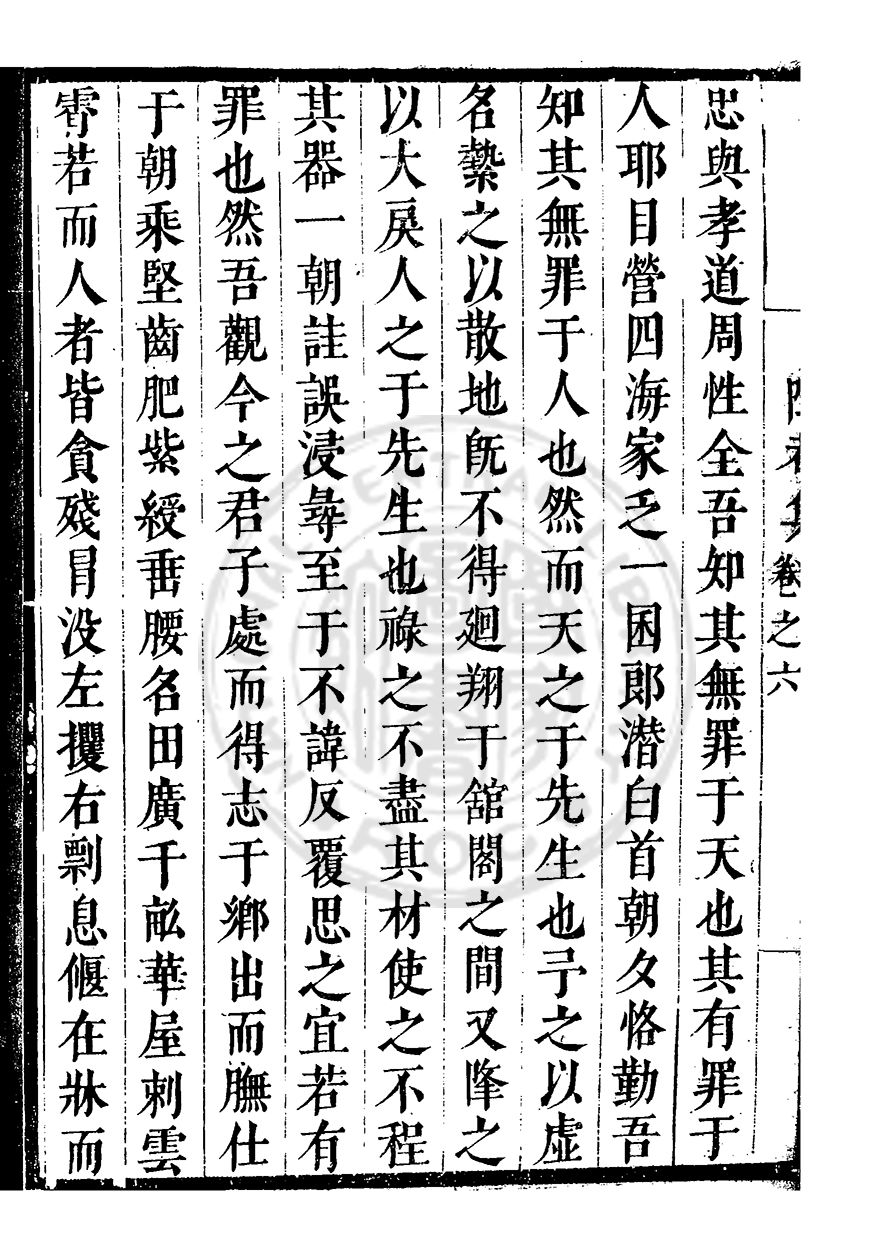 卷之六
忠與孝道周性全吾知其無罪于天也其有罪于
人耶目營四海家乏一困郎潛白首朝夕恪勤吾
知其無罪于人也然而天之于先生也予之以虛
名縶之以散地旣不得廻翔于舘閣之間又降之
以大戾人之于先生也祿之不盡其材使之不程
其器一朝詿誤浸尋至于不諱反覆思之宜若有
罪也然吾觀今之君子處而得志于鄉出而膴仕
于朝乘堅齒肥紫綬垂腰名田廣千畝華屋刺雲
霄若而人者皆貪殘冒没左攫右剽息偃在牀而